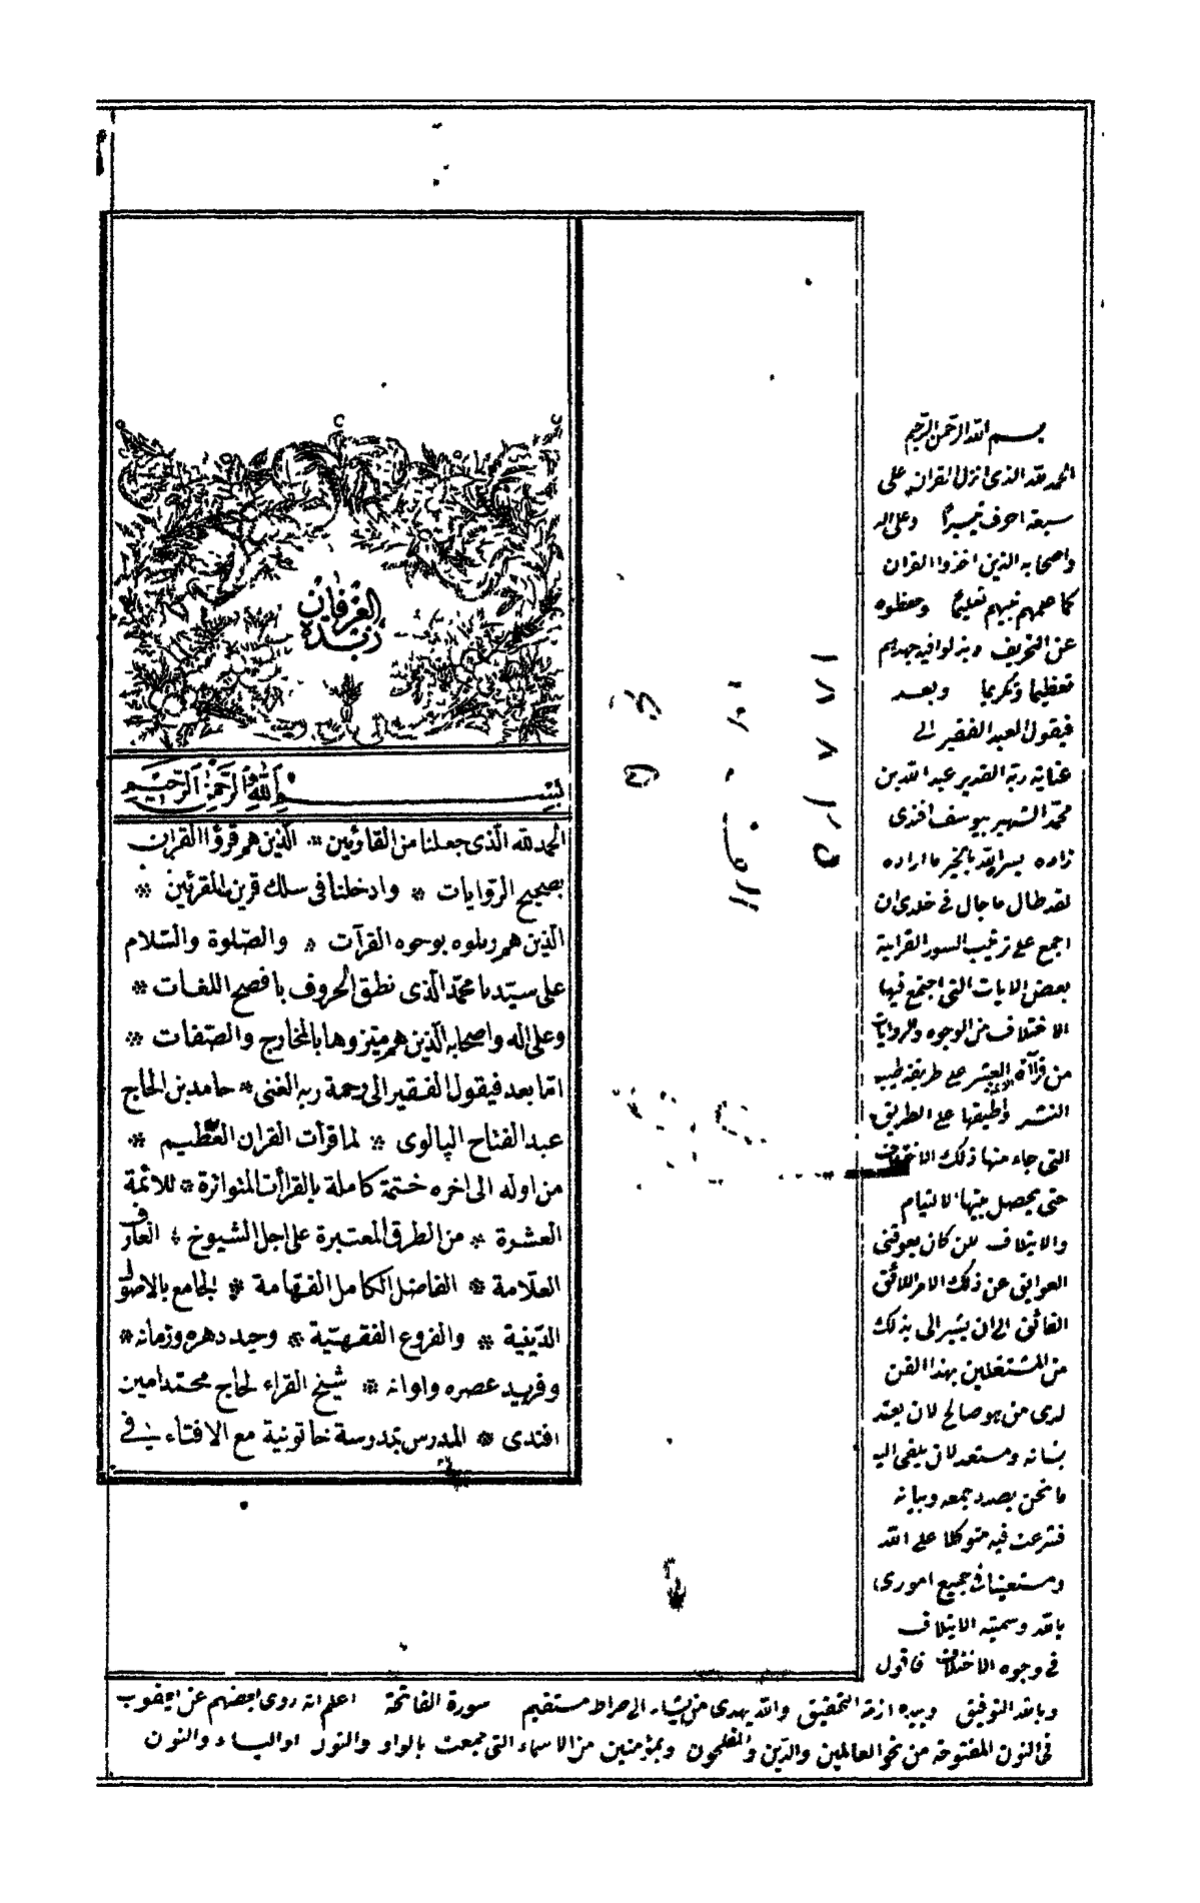 زبدة
العرفان
بسم الله الرحمن الرحيم
الحمد لله الذى جعلنا من القارئين * الذين هم قرؤا القران
بصحيح الروايات * وادخلنا فى سلك قرين المقرئين *
الذين هم رتلوه بوجوه القرآت * والصلوة والسلام
على سيدنا محمد الذى نطق الحروف بافصح اللغات *
وعلى اله واصحابه الذين هم ميزوها بالمخارج والصفات *
اما بعد فيقول الفقير الى رحمة ربه الغنى * حامد بن الحاج
عبد الفتاح البالوى * لما قرأت القران العظيم *
من اوله الى اخره ختمة كاملة بالقرأت المتواترة * للائمة
العشرة * من الطرق المعتبرة على اجل الشيوخ * العارف
العلامة * الفاضل الكامل الفهامة * الجامع بالاصول
الدينية * والفروع الفقهية * وحيد دهره وزمانه *
وفريد عصره واوانه * شيخ القراء لحاج محمد امين
افندى * المدرس بمدرسة خاتونية مع الافتاء فى
بسم الله الرحمن الرحيم
الحمد لله الذى انزل القران على
سبعة احرف تيسيرا وعلى اله
واصحابه الذين اخذوا القران
كما علمهم نبيهم تعليما وحفظوه
عن التحريف وبذلوا فيه جهدهم
تعظيما وتكريما وبعد
فيقول العبد الفقير الى
عناية ربه القدير عبد الله بن
محمد الشهير بيوسف افندى
زاده يسر الله بالخير ما اراده
لقد طال ما جال فى خلدى ان
اجمع على ترتيب السور القرانية
بعض الايات التى اجتمع فيها
الاختلاف من الوجوه والروايات
من قرآة العشر على طريقة طيبة
النشر وتطبيقها على الطريق
التى جاء منها ذلك الاختلاف
حتى يحصل بينها الالتيام
والايتلاف لكن كان يعوقنى
العوايق عن ذلك الامر اللائق
الفائق الى ان يشير الى بذلك
من المشتغلين بهذا الفن
لدى من هو صالح لان يعتد
بشانه ومستعد لان يلقى اليه
ما نحن بصدد جمعه وبيانه
فشرعت فيه متوكلا على الله
ومستعينا فى جميع امورى
بالله وسميته الايتلاف
فى وجوه الاختلاف فاقول
وبالله التوفيق وبيده ازمة التحقيق والله يهدى من يشاء الى صراط مستقيم سورة الفاتحة اعلم انه روى بعضهم عن يعقوب
فى النون المفتوحة من نحو العالمين والذين والمفلحون وبمؤمنين من الاسماء التى جمعت بالواو والنون او الياء والنون